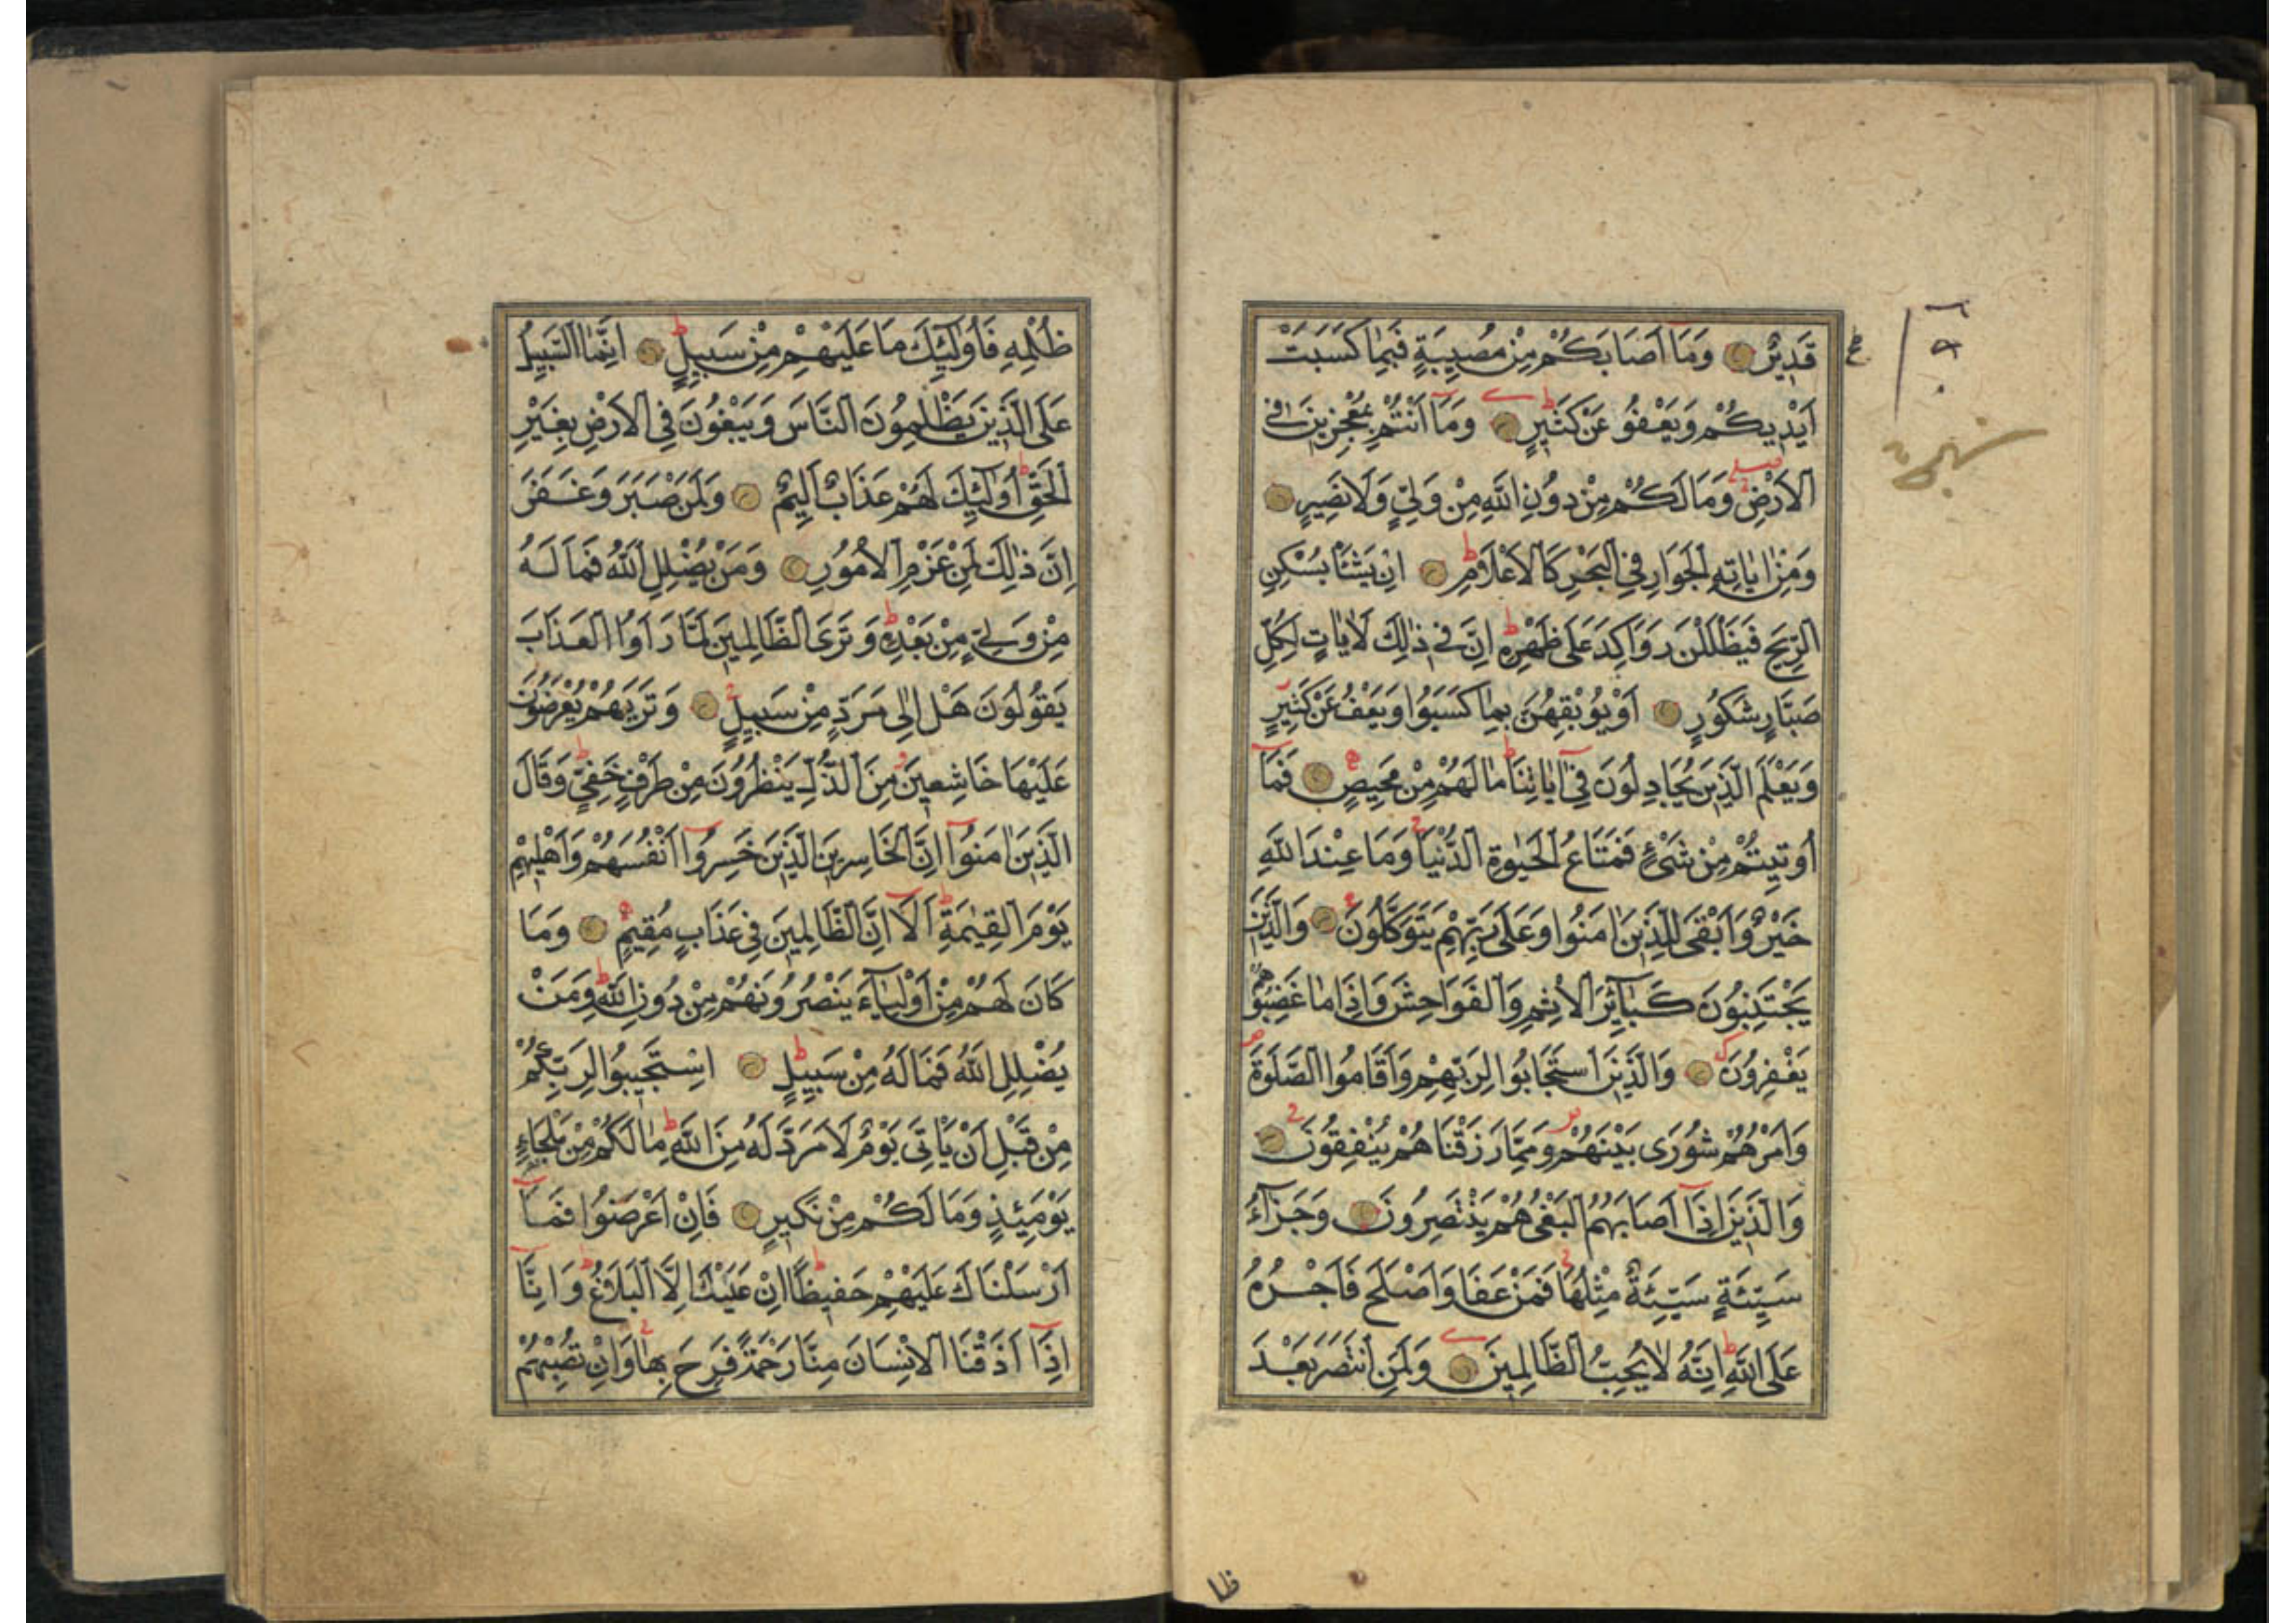 قَدِيرٌ وَمَٓا اَصَابَكُمْ مِنْ مُصِيبَةٍ فَبِمَا كَسَبَتْ
اَيْدِيكُمْ وَيَعْفُو عَنْ كَثِيرٍ وَمَٓا اَنْتُمْ بِمُعْجِزِينَ فِي
الْاَرْضِ وَمَا لَكُمْ مِنْ دُونِ اللهِ مِنْ وَلِيٍّ وَلَا نَصِيرٍ
وَمِنْ اٰيَاتِهِ الْجَوَارِ فِي الْبَحْرِ كَالْاَعْلَامِ اِنْ يَشَأْ يُسْكِنِ
الرِّيحَ فَيَظْلَلْنَ رَوَاكِدَ عَلٰى ظَهْرِهِ اِنَّ فِي ذٰلِكَ لَاٰيَاتٍ لِكُلِّ
صَبَّارٍ شَكُورٍ اَوْ يُوبِقْهُنَّ بِمَا كَسَبُوا وَيَعْفُ عَنْ كَثِيرٍ
وَيَعْلَمَ الَّذِينَ يُجَادِلُونَ فِٓي اٰيَاتِنَا مَا لَهُمْ مِنْ مَحِيصٍ فَمَٓا
اُوتِيتُمْ مِنْ شَيْءٍ فَمَتَاعُ الْحَيٰوةِ الدُّنْيَا وَمَا عِنْدَ اللهِ
خَيْرٌ وَاَبْقٰى لِلَّذِينَ اٰمَنُوا وَعَلٰى رَبِّهِمْ يَتَوَكَّلُونَ وَالَّذِينَ
يَجْتَنِبُونَ كَبَٓائِرَ الْاِثْمِ وَالْفَوَاحِشَ وَاِذَا مَا غَضِبُوا هُمْ
يَغْفِرُونَ وَالَّذِينَ اسْتَجَابُوا لِرَبِّهِمْ وَاَقَامُوا الصَّلٰوةَ
وَاَمْرُهُمْ شُورٰى بَيْنَهُمْ وَمِمَّا رَزَقْنَاهُمْ يُنْفِقُونَ
وَالَّذِينَ اِذَٓا اَصَابَهُمُ الْبَغْيُ هُمْ يَنْتَصِرُونَ وَجَزَٓاءُ
سَيِّئَةٍ سَيِّئَةٌ مِثْلُهَا فَمَنْ عَفَا وَاَصْلَحَ فَاَجْرُهُ
عَلَى اللهِ اِنَّهُ لَا يُحِبُّ الظَّالِمِينَ وَلَمَنِ انْتَصَرَ بَعْدَ
ظُلْمِهِ فَاُولٰٓئِكَ مَا عَلَيْهِمْ مِنْ سَبِيلٍ اِنَّمَا السَّبِيلُ
عَلَى الَّذِينَ يَظْلِمُونَ النَّاسَ وَيَبْغُونَ فِي الْاَرْضِ بِغَيْرِ
الْحَقِّ اُولٰٓئِكَ لَهُمْ عَذَابٌ اَلِيمٌ وَلَمَنْ صَبَرَ وَغَفَرَ
اِنَّ ذٰلِكَ لَمِنْ عَزْمِ الْاُمُورِ وَمَنْ يُضْلِلِ اللهُ فَمَا لَهُ
مِنْ وَلِيٍّ مِنْ بَعْدِهِ وَتَرَى الظَّالِمِينَ لَمَّا رَاَوُا الْعَذَابَ
يَقُولُونَ هَلْ اِلٰى مَرَدٍّ مِنْ سَبِيلٍ وَتَرٰيهُمْ يُعْرَضُونَ
عَلَيْهَا خَاشِعِينَ مِنَ الذُّلِّ يَنْظُرُونَ مِنْ طَرْفٍ خَفِيٍّ وَقَالَ
الَّذِينَ اٰمَنُٓوا اِنَّ الْخَاسِرِينَ الَّذِينَ خَسِرُٓوا اَنْفُسَهُمْ وَاَهْلِيهِمْ
يَوْمَ الْقِيٰمَةِ اَلَٓا اِنَّ الظَّالِمِينَ فِي عَذَابٍ مُقِيمٍ وَمَا
كَانَ لَهُمْ مِنْ اَوْلِيَٓاءَ يَنْصُرُونَهُمْ مِنْ دُونِ اللهِ وَمَنْ
يُضْلِلِ اللهُ فَمَا لَهُ مِنْ سَبِيلٍ اِسْتَجِيبُوا لِرَبِّكُمْ
مِنْ قَبْلِ اَنْ يَاْتِيَ يَوْمٌ لَا مَرَدَّ لَهُ مِنَ اللهِ مَا لَكُمْ مِنْ مَلْجَاءٍ
يَوْمَئِذٍ وَمَا لَكُمْ مِنْ نَكِيرٍ فَاِنْ اَعْرَضُوا فَمَٓا
اَرْسَلْنَاكَ عَلَيْهِمْ حَفِيظًا اِنْ عَلَيْكَ اِلَّا الْبَلَاغُ وَاِنَّٓا
اِذَٓا اَذَقْنَا الْاِنْسَانَ مِنَّا رَحْمَةً فَرِحَ بِهَا وَاِنْ تُصِبْهُمْ